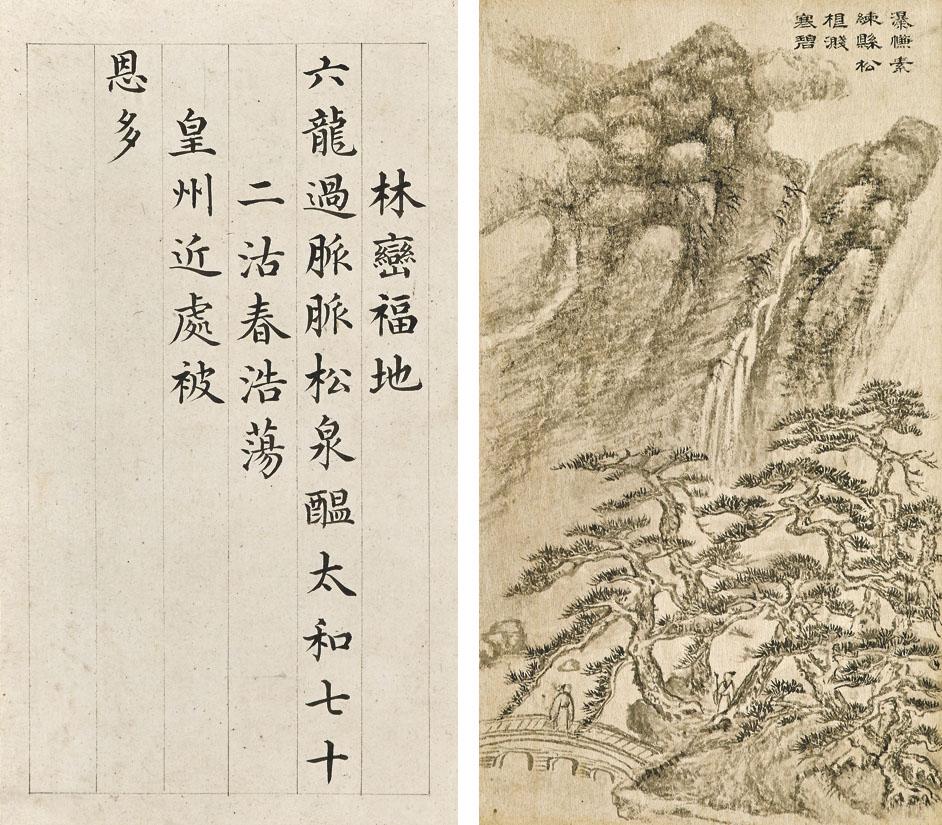 林巒福地
六龍過脈脈松泉醞太和七十
二沽春浩蕩
皇州近處被
恩多
瀑素
練縣松
根濺
寒碧